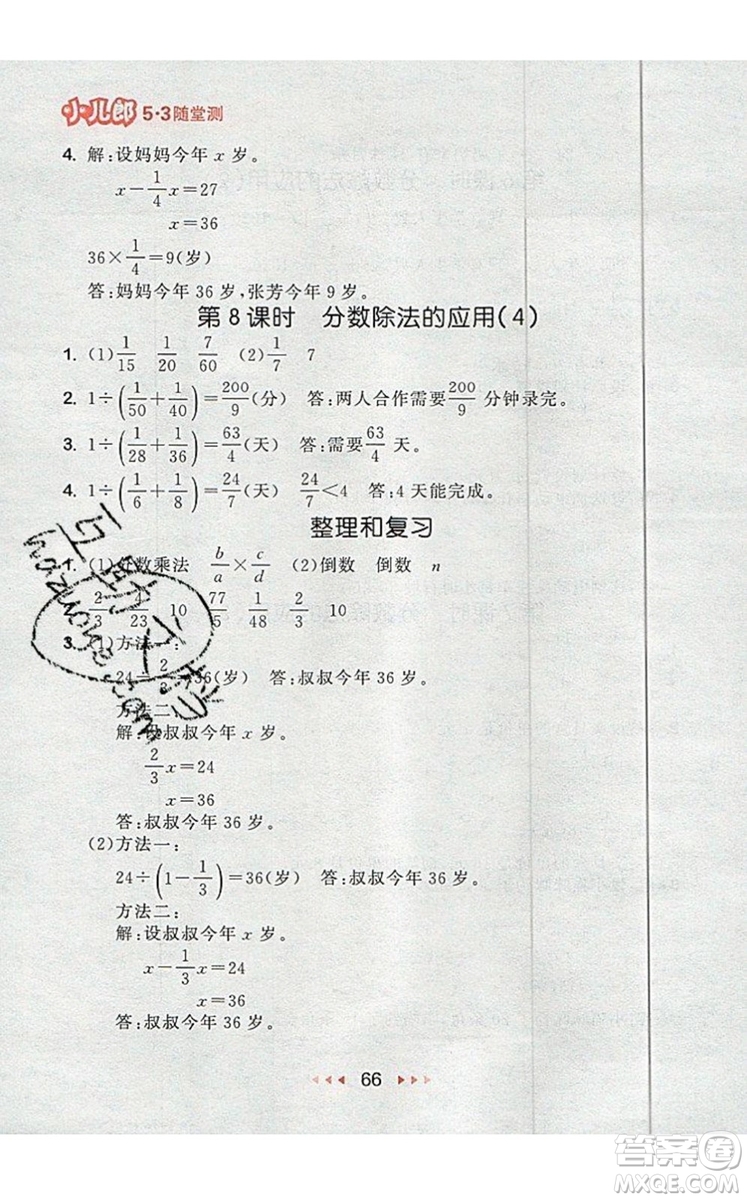 小儿郎 5·3随堂测
4. 解:设妈妈今年 x 岁。
x-1/4x=27
x=36
36×1/4=9(岁)
答:妈妈今年 36 岁,张芳今年 9 岁。
第 8 课时 分数除法的应用(4)
1. (1)1/15 1/20 7/60 (2)1/7 7
2. 1÷(1/50+1/40)=200/9(分) 答:两人合作需要200/9 分钟录完。
3. 1÷(1/28+1/36)=63/4(天) 答:需要63/4 天。
4. 1÷(1/6+1/8)=24/7(天) 24/7<4 答:4 天能完成。
整理和复习
1. (1)分数乘法 b/a×c/d (2)倒数 倒数 n
2. 2/3 4/23 10 77/5 1/48 2/3 10
3. (1)方法一:
24÷2/3=36(岁) 答:叔叔今年 36 岁。
方法二:
解:设叔叔今年 x 岁。
2/3x=24
x=36
答:叔叔今年 36 岁。
(2)方法一:
24÷(1-1/3)=36(岁) 答:叔叔今年 36 岁。
方法二:
解:设叔叔今年 x 岁。
x-1/3x=24
x=36
答:叔叔今年 36 岁。
66
答案卷
MXQE.COM